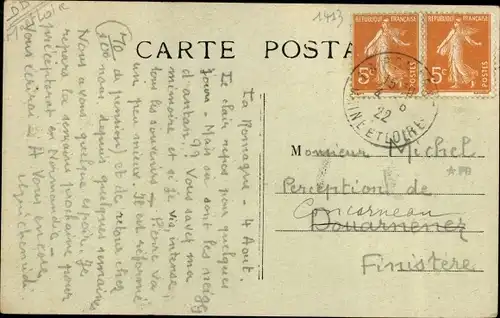 1413
CARTE POSTALE
REPUBLIQUE FRANÇAISE
5c
POSTES
REPUBLIQUE FRANÇAISE
5c
POSTES
22
NE ET LOIRE
La Romagne - 4 Août.
Le clair repos pour quelques
jours - Mais où sont les neiges
d'antan?? Vous savez ma
mémoire et si je vis intense,
tous les souvenirs - Pierre va
un peu mieux. Il est réformé
(70 de pension) et de retour chez
nous depuis quelques semaines
Nous avons quelque espoir. Je
repars la semaine prochaine pour
en Normandie -
Vous écrirai - A vous encore
Monsieur Michel
Perception de
Concarneau
Douarnenez
Finistère